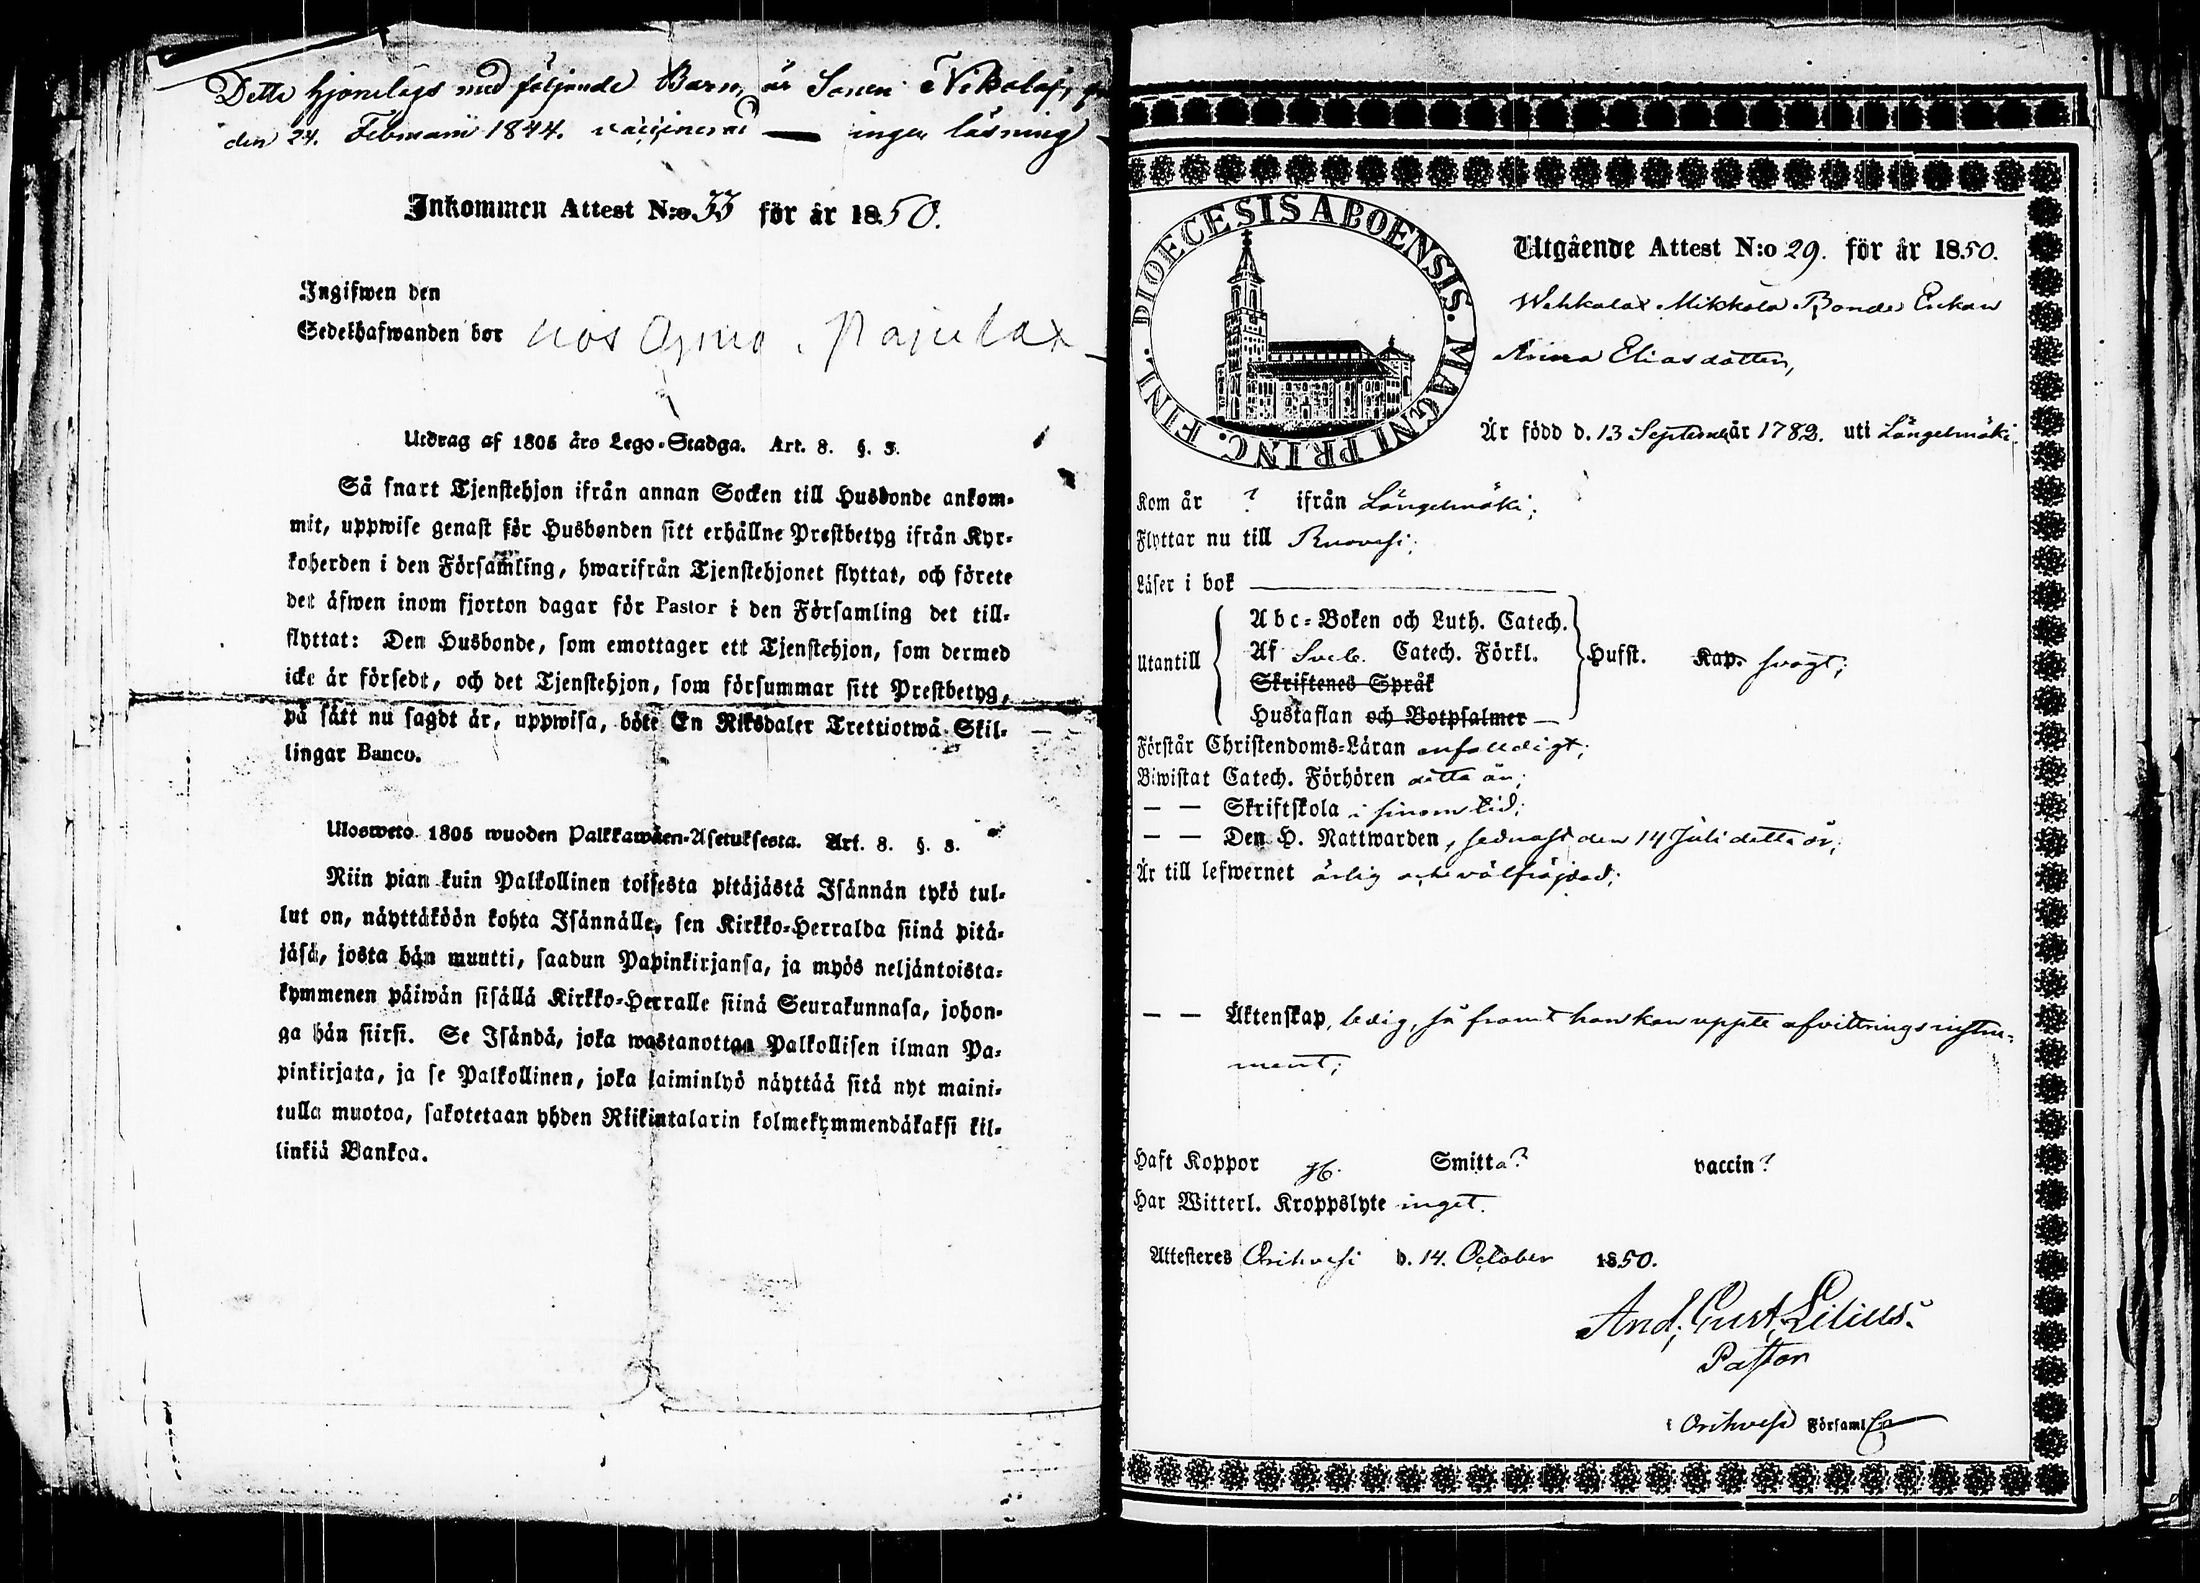 Dette hjonelags med följande Barn, är Sonen Nikolaj,
den 24. Februarii 1844. vaccinerad — ingen läsning
Inkommen Attest N:o 33 för år 1850.
Ingifwen den
Sedelhafwanden bor hos Pajulax
Utdrag af 1805 års Lego-Stadga. Art. 8. §. 3.
Så snart Tjenstehjon ifrån annan Socken till Husbonde ankom-
mit, uppwise genast för Husbonden sitt erhållne Prestbetyg ifrån Kyr-
koherden i den Församling, hwarifrån Tjenstehjonet flyttat, och förete
det äfwen inom fjorton dagar för Pastor i den Församling det till-
flyttat: Den Husbonde, som emottager ett Tjenstehjon, som dermed
icke är försedt, och det Tjenstehjon, som försummar sitt Prestbetyg,
på sätt nu sagdt är, uppwisa, böte En Riksdaler Trettiotwå Skil-
lingar Banco.
Ulosweto 1805 wuoden Palkkawäen-Asetuksesta. Art. 8. §. 3.
Niin pian kuin Palkollinen toisesta pitäjästä Isännän tykö tul-
lut on, näyttäköön kohta Isännälle, sen Kirkko-Herralda siinä pitä-
jäsä, josta hän muutti, saadun Papinkirjansa, ja myös neljäntoista-
kymmenen päiwän sisällä Kirkko-Herralle siinä Seurakunnasa, johon-
ga hän siirsi. Se Isändä, joka wastanottaa Palkollisen ilman Pa-
pinkirjata, ja se Palkollinen, joka laiminlyö näyttää sitä nyt maini-
tulla muotoa, sakotetaan yhden Riikintalarin kolmekymmendäkaksi kil-
linkiä Bankoa.
DIOECESIS ABOENSIS. MAGNI PRINC. FINL.
Utgående Attest N:o 29. för år 1850.
Wehkalax Mikkola Bonde Enkan
Anna Eliasdotter,
Är född d. 13 September år 1782. uti Längelmäki.
Kom år ? ifrån Längelmäki;
Flyttar nu till Ruovesi;
Läser i bok
Utantill
Abc-Boken och Luth. Catech.
Af Sveb. Catech. Förkl.
Skriftenes Språk
Hustaflan och Botpsalmer —
Hufst. Kap. svagt;
Förstår Christendoms-Läran enfaldigt;
Biwistat Catech. Förhören detta år;
— — Skriftskola i sinom tid;
— — Den H. Nattwarden, sednast den 14 Juli detta år;
Är till lefwernet ärlig och välfräjdad;
— — Äktenskap, ledig, så framt hon kan uppte afvittrings instru-
ment;
Haft Koppor Smitta? vaccin?
Har Witterl. Kroppslyte inget.
Attesteres Orihvesi d. 14. October 1850.
And. Gust. Lilius.
Pastor
i Orihvesi Församl